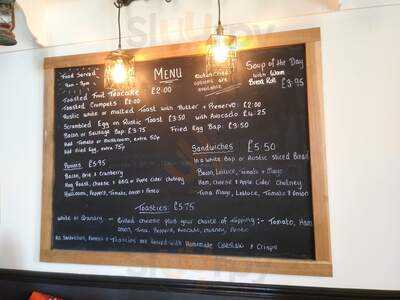 MENU
Food Served
9am -
Toasted Fruit Teacake £2.00
Toasted Crumpets £2.00
Rustic White or Malted Toast with Butter + Preserve £2.00
Scrambled Egg on Rustic Toast £3.50 with Avocado £4.25
Bacon or Sausage Bap £3.75 Fried Egg Bap £3.50
Add Tomato or Mushroom, extra 50p
Add Fried Egg, extra 75p
Gluten free
options are
available
Soup of the Day
with Warm
Bread Roll £3.95
Paninis £5.95
Bacon, Brie & Cranberry
Hog Roast, Cheese & BBQ or Apple Cider Chutney
Mushroom, Peppers, Tomato, Onion & Pesto
Sandwiches £5.50
In a White Bap or Rustic Sliced Bread
Bacon, Lettuce, Tomato + Mayo
Ham, Cheese & Apple Cider Chutney
Tuna Mayo, Lettuce, Tomato & Onion
Toasties £5.75
White or Granary - Grilled cheese plus your choice of topping :- Tomato, Ham
Onion, Tuna, Peppers, Avocado, Chutney, Pesto
All Sandwiches, Paninis + Toasties are served with Homemade Coleslaw & Crisps